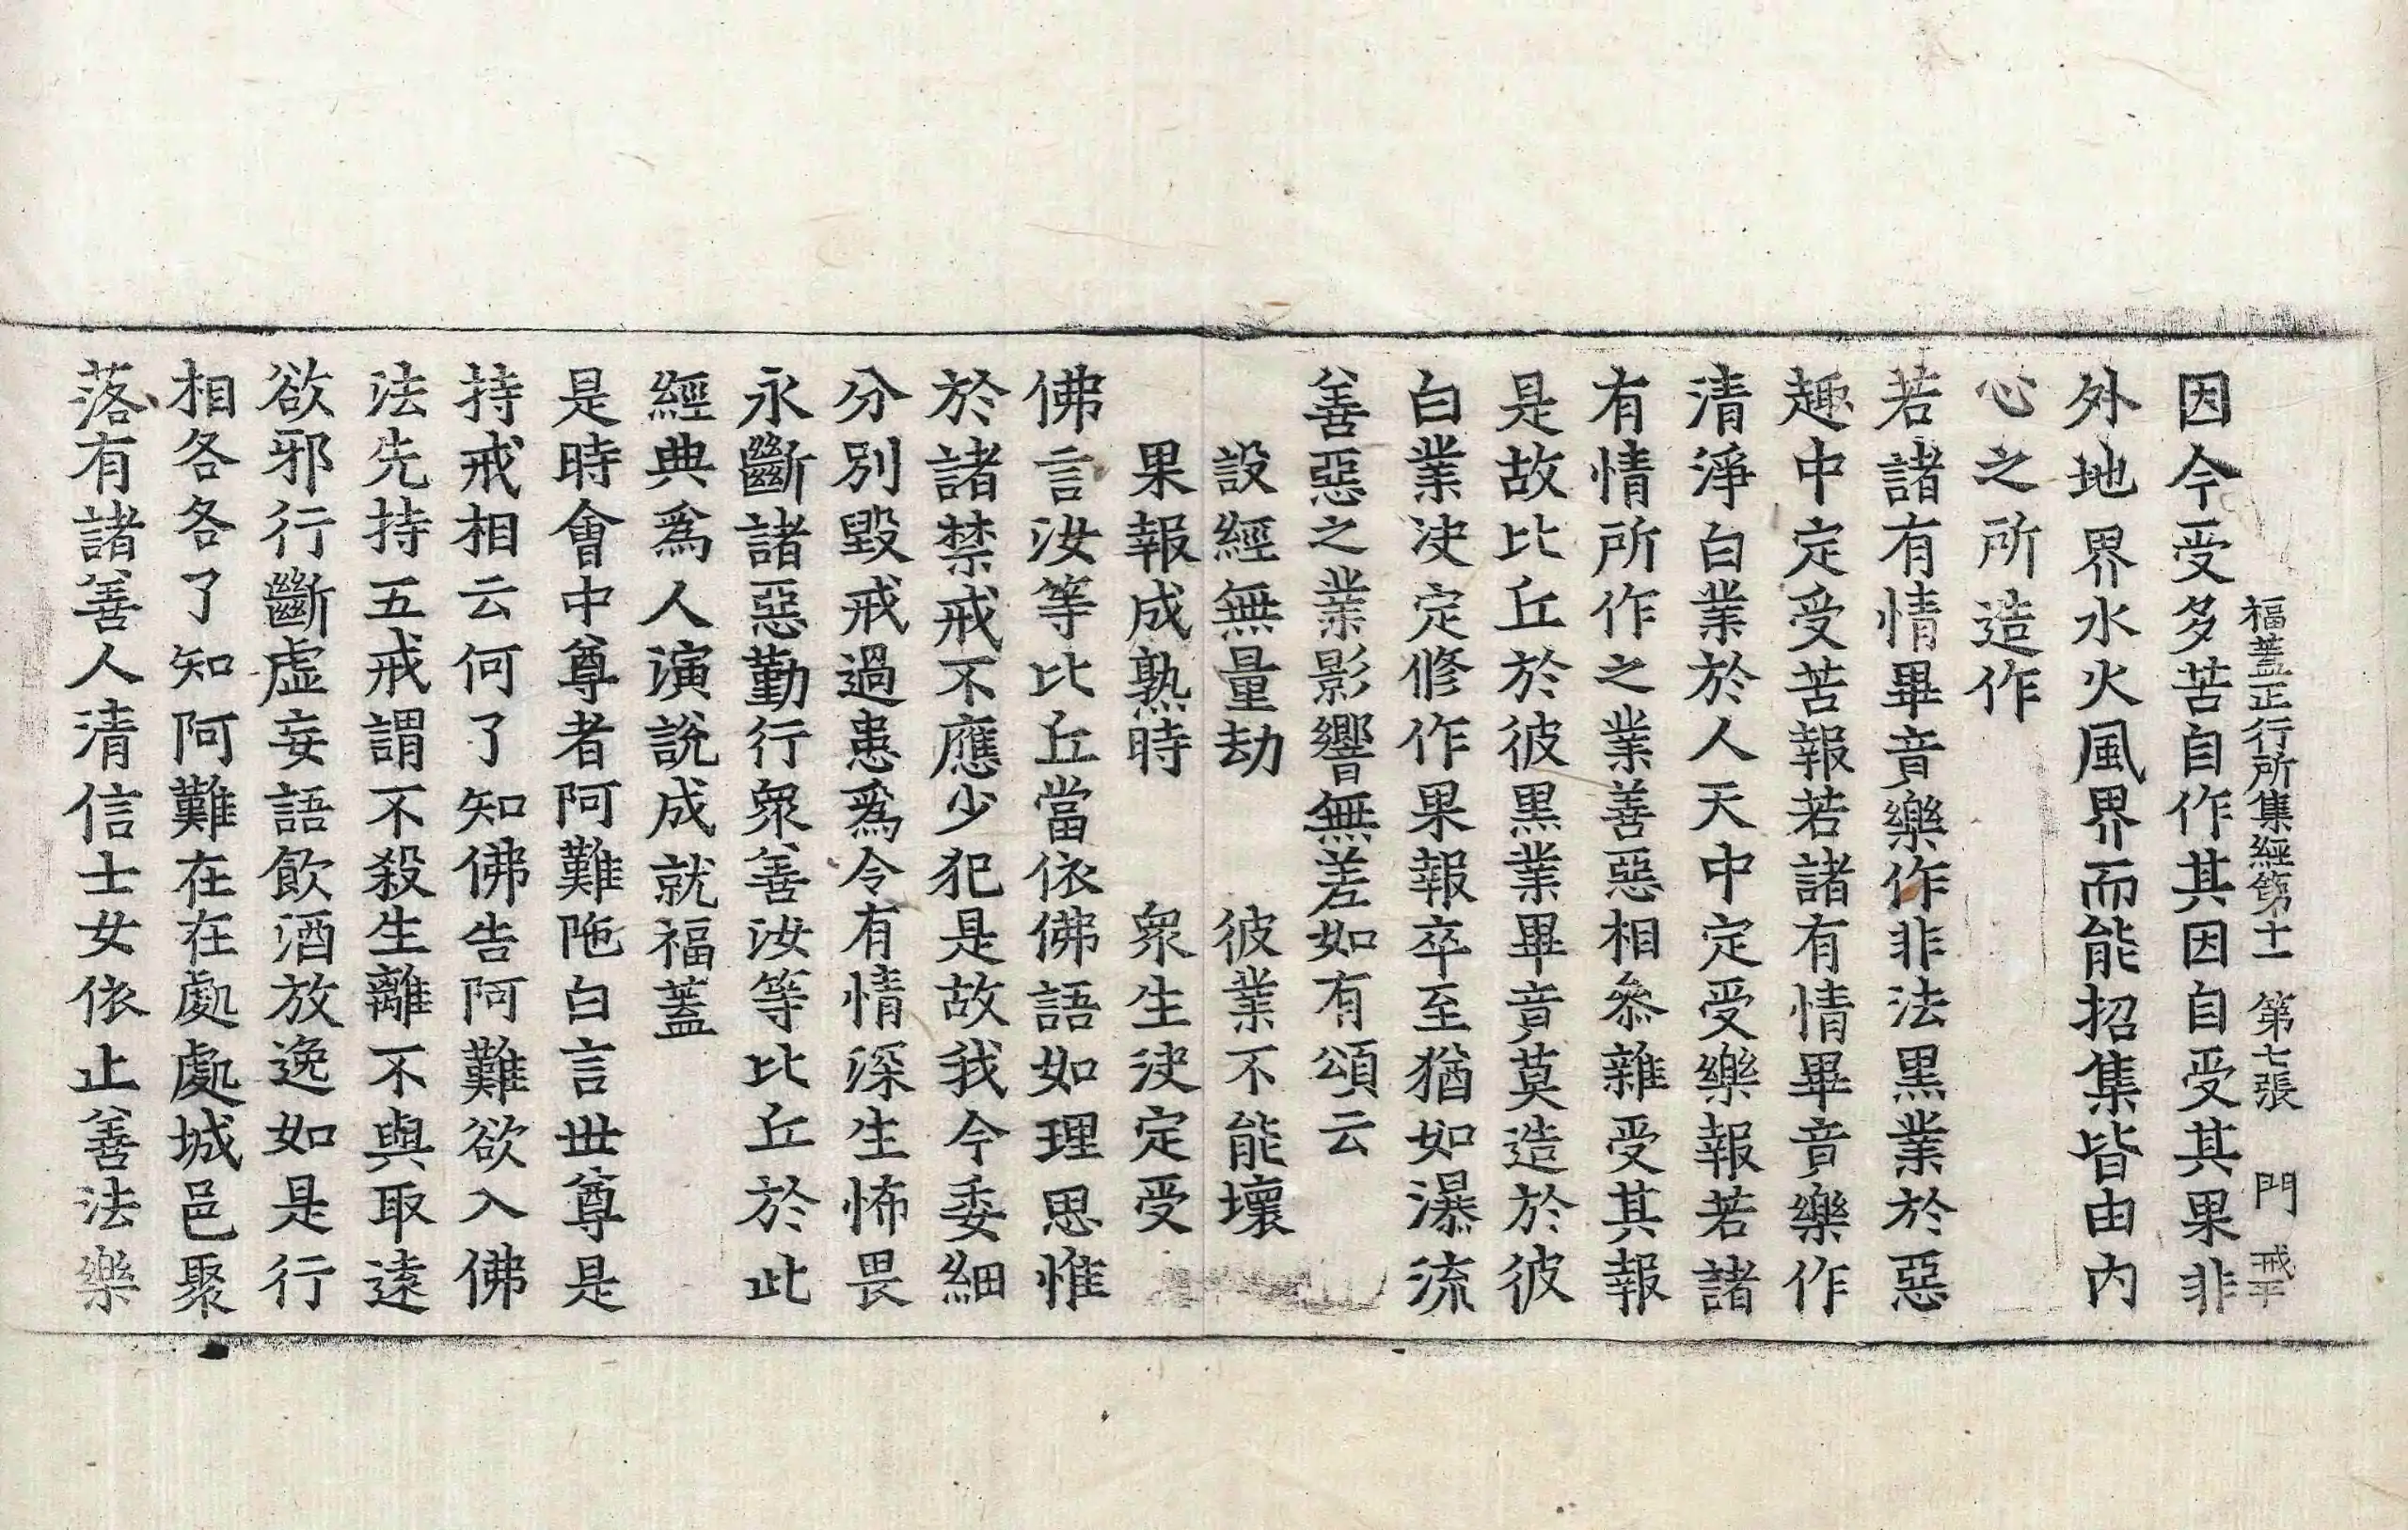 福蓋正行所集經第十一 第七張 門
因今受多苦自作其因自受其果非
外地界水火風界而能招集皆由内
心之所造作
若諸有情畢竟樂作非法黒業於惡
趣中定受苦報若諸有情畢竟樂作
清淨白業於人天中定受樂報若諸
有情所作之業善惡相叅雜受其報
是故比丘於彼黒業畢竟莫造於彼
白業决定修作果報卒至猶如瀑流
善惡之業影響無差如有頌云
設經無量劫 彼業不能壞
果報成熟時 衆生决定受
佛言汝等比丘當依佛語如理思惟
於諸禁戒不應少犯是故我今委細
分別毀戒過患爲令有情深生怖畏
永斷諸惡勤行衆善汝等比丘於此
經典爲人演說成就福蓋
是時會中尊者阿難陁白言世尊是
持戒相云何了知佛告阿難欲入佛
法先持五戒謂不殺生離不與取逺
欲邪行斷虛妄語飲酒放逸如是行
相各各了知阿難在在處處城邑聚
落有諸善人清信士女依止善法樂